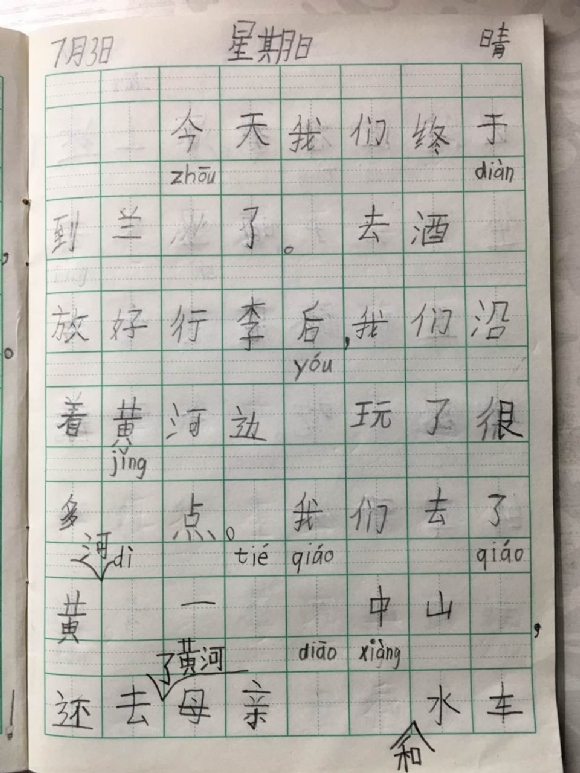 7月3日 星期日 晴
今天我们终于
zhōu diàn
到兰 了。去酒
放好行李后,我们沿
yóu
着黄河边 玩了很
jǐng
多 点。我们去了
河 dì tié qiáo qiáo
黄 一 中山 ,
了黄河 diāo xiàng
还去母亲 水车
和